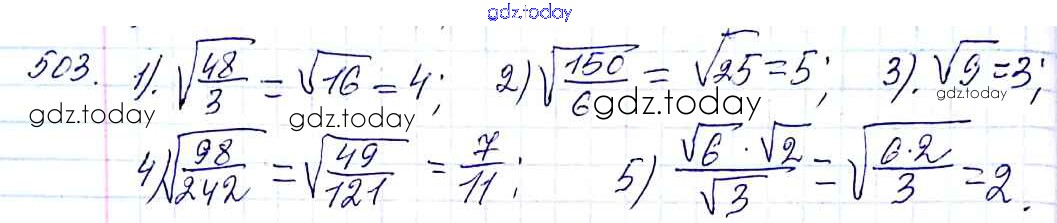 gdz.today
503. 1). √(48/3) = √16 = 4; 2) √(150/6) = √25 = 5; 3). √9 = 3;
gdz.today gdz.today gdz.today gdz.today
4) √(98/242) = √(49/121) = 7/11; 5) (√6 · √2)/√3 = √((6·2)/3) = 2.